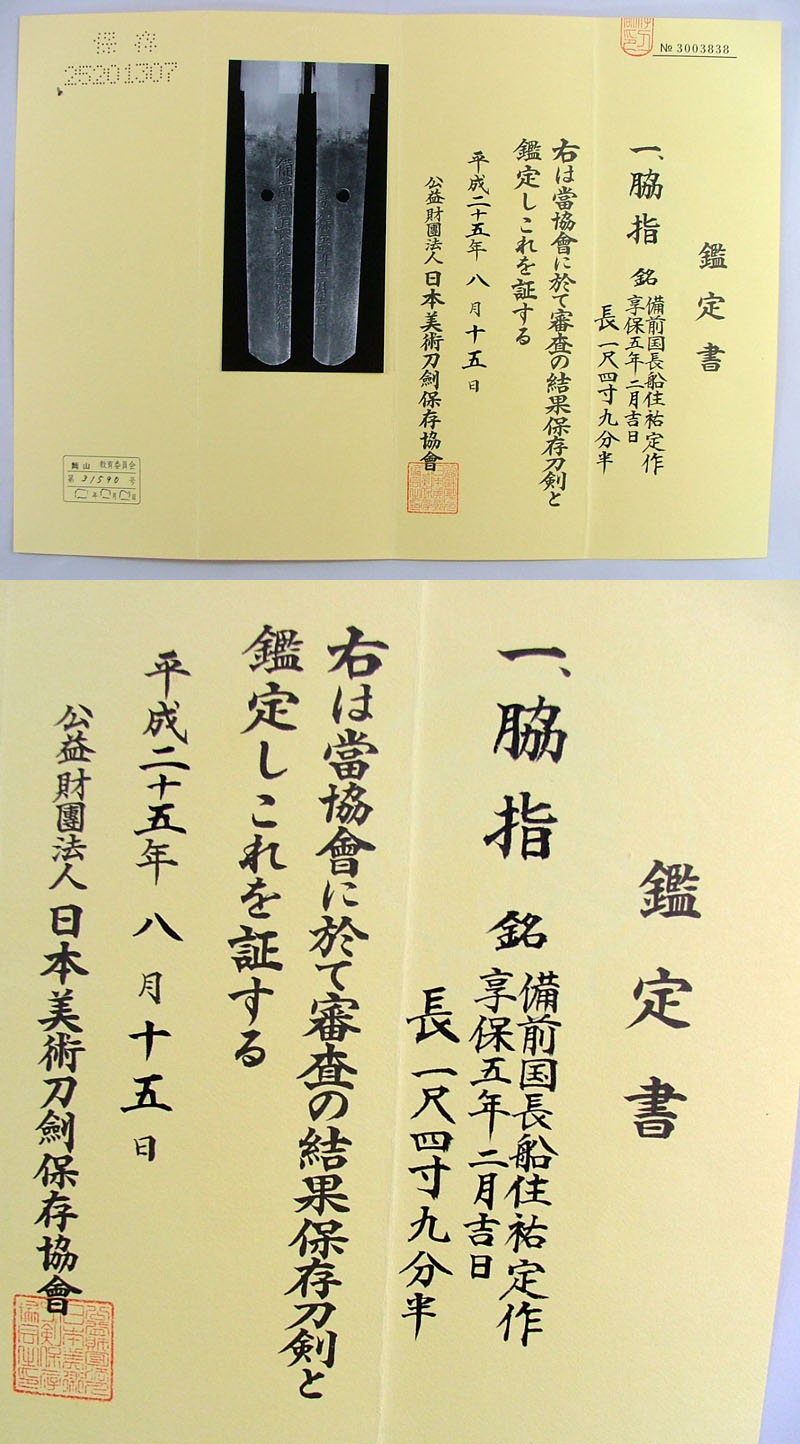 № 3003838
鑑定書
一、脇指 銘 備前国長船住祐定作
享保五年二月吉日
長一尺四寸九分半
右は當協會に於て審査の結果保存刀剣と
鑑定しこれを証する
平成二十五年八月十五日
公益財團法人日本美術刀劍保存協會
保存
25201307
教育委員会
第31590号
年 月 日
鑑定書
一、脇指 銘 備前国長船住祐定作
享保五年二月吉日
長一尺四寸九分半
右は當協會に於て審査の結果保存刀剣と
鑑定しこれを証する
平成二十五年八月十五日
公益財團法人日本美術刀劍保存協會